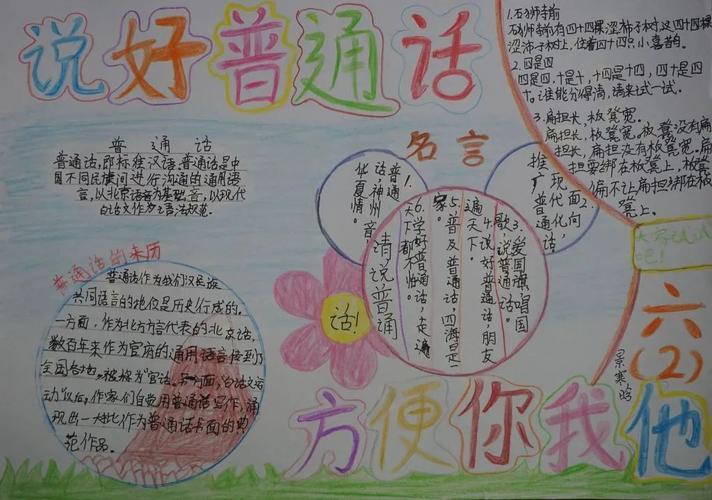 说好普通话
普通话
普通话,即标准汉语,普通话是中
国不同民族间进行沟通的通用语
言,以北京语音为基础音,以现代
白话文作为语法规范。
普通话的来历
普通话作为我们汉民族
共同语言的地位是历史行成的。
一方面,作为北方方言代表的北京话,
数百年来作为官府的通用语言推到了
全国各地。被称为"官话。另一方面,白话文运
动"以后,作家们自觉用普通话写作,涌
现出一大批作为普通话书面的典
范作品。
名言
1.普通
话,神州音,
华夏情。
2.
现代化
普面向
推广普通话,
3.爱国旗唱国
歌,说普通话。
4.说好普通话,朋友
遍天下。
5.普及普通话,四海是一
家。
6.学好普通话,走遍
天下都不怕。
请说普通
话!
1.石狮寺前
石狮寺前有四十四棵涩柿子树,这四十四棵
涩柿子树上,住着四十四只小喜鹊。
2.四是四
四是四,十是十,十四是十四,四十是四
十。谁能分得清,请来试一试。
3.扁担长,板凳宽。
扁担长,板凳宽。板凳没有扁
担长,扁担没有板凳宽。扁
担要绑在板凳上,板凳
偏不让扁担绑在板
凳上。
大家试试
吧!
六
(2)
方便你我他